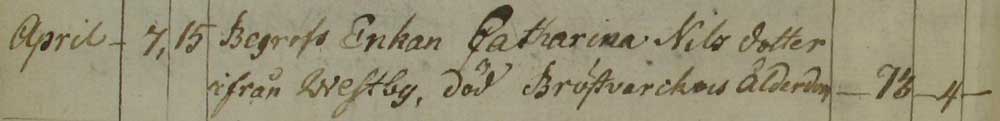 April - 7, 15 Begrofs Enkan Catharina Nils dotter
ifrån Westby, död Bröstvärck ålderdom - 78 - 4 -